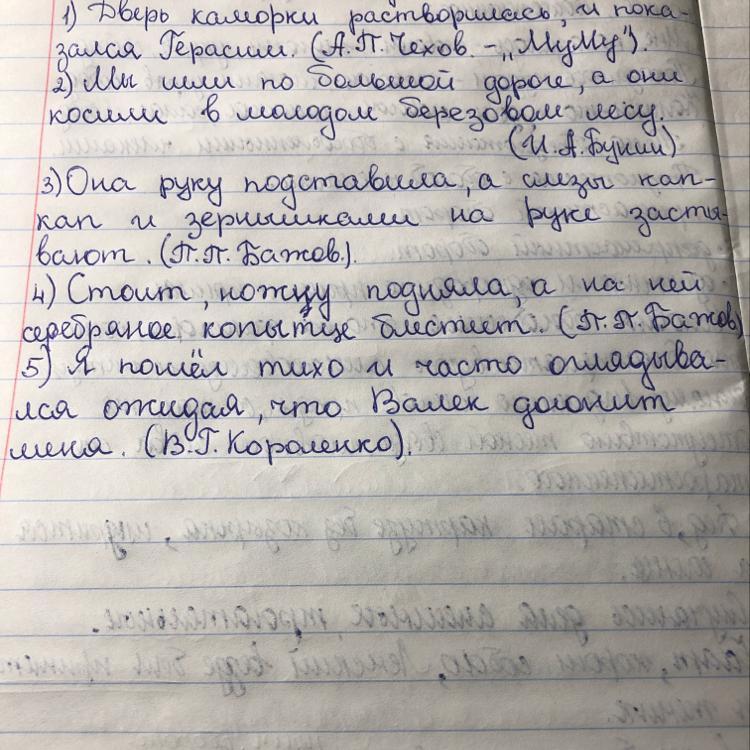 1) Дверь каморки растворилась, и пока-
зался Герасим. (А.П.Чехов - „МуМу").
2) Мы шли по большой дороге, а они
косили в молодом березовом лесу.
(И.А.Бунин)
3) Она руку подставила, а слезы кап-
кап и зернышками на руке засты-
вают. (П.П.Бажов.).
4) Стоит, ножку подняла, а на ней
серебряное копытце блестит. (П.П.Бажов)
5) Я пошёл тихо и часто оглядыва-
лся ожидая, что Валек догонит
меня. (В.Г.Короленко).